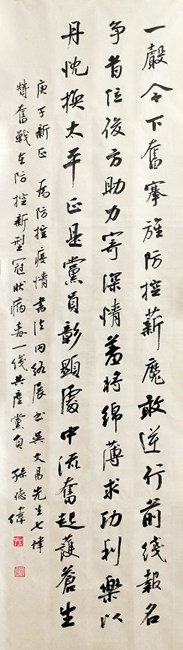 一声令下奋搴旌防控薪魔敢逆行前线报名
争首位后方助力寄深情羞将绵薄求功利乐以
丹忱换太平正是党员彰显处中流奋起护苍生
庚子新正 为防控疫情书法网络展书吴文昌先生七律
赞奋战在防控新型冠状病毒一线共产党员 孙